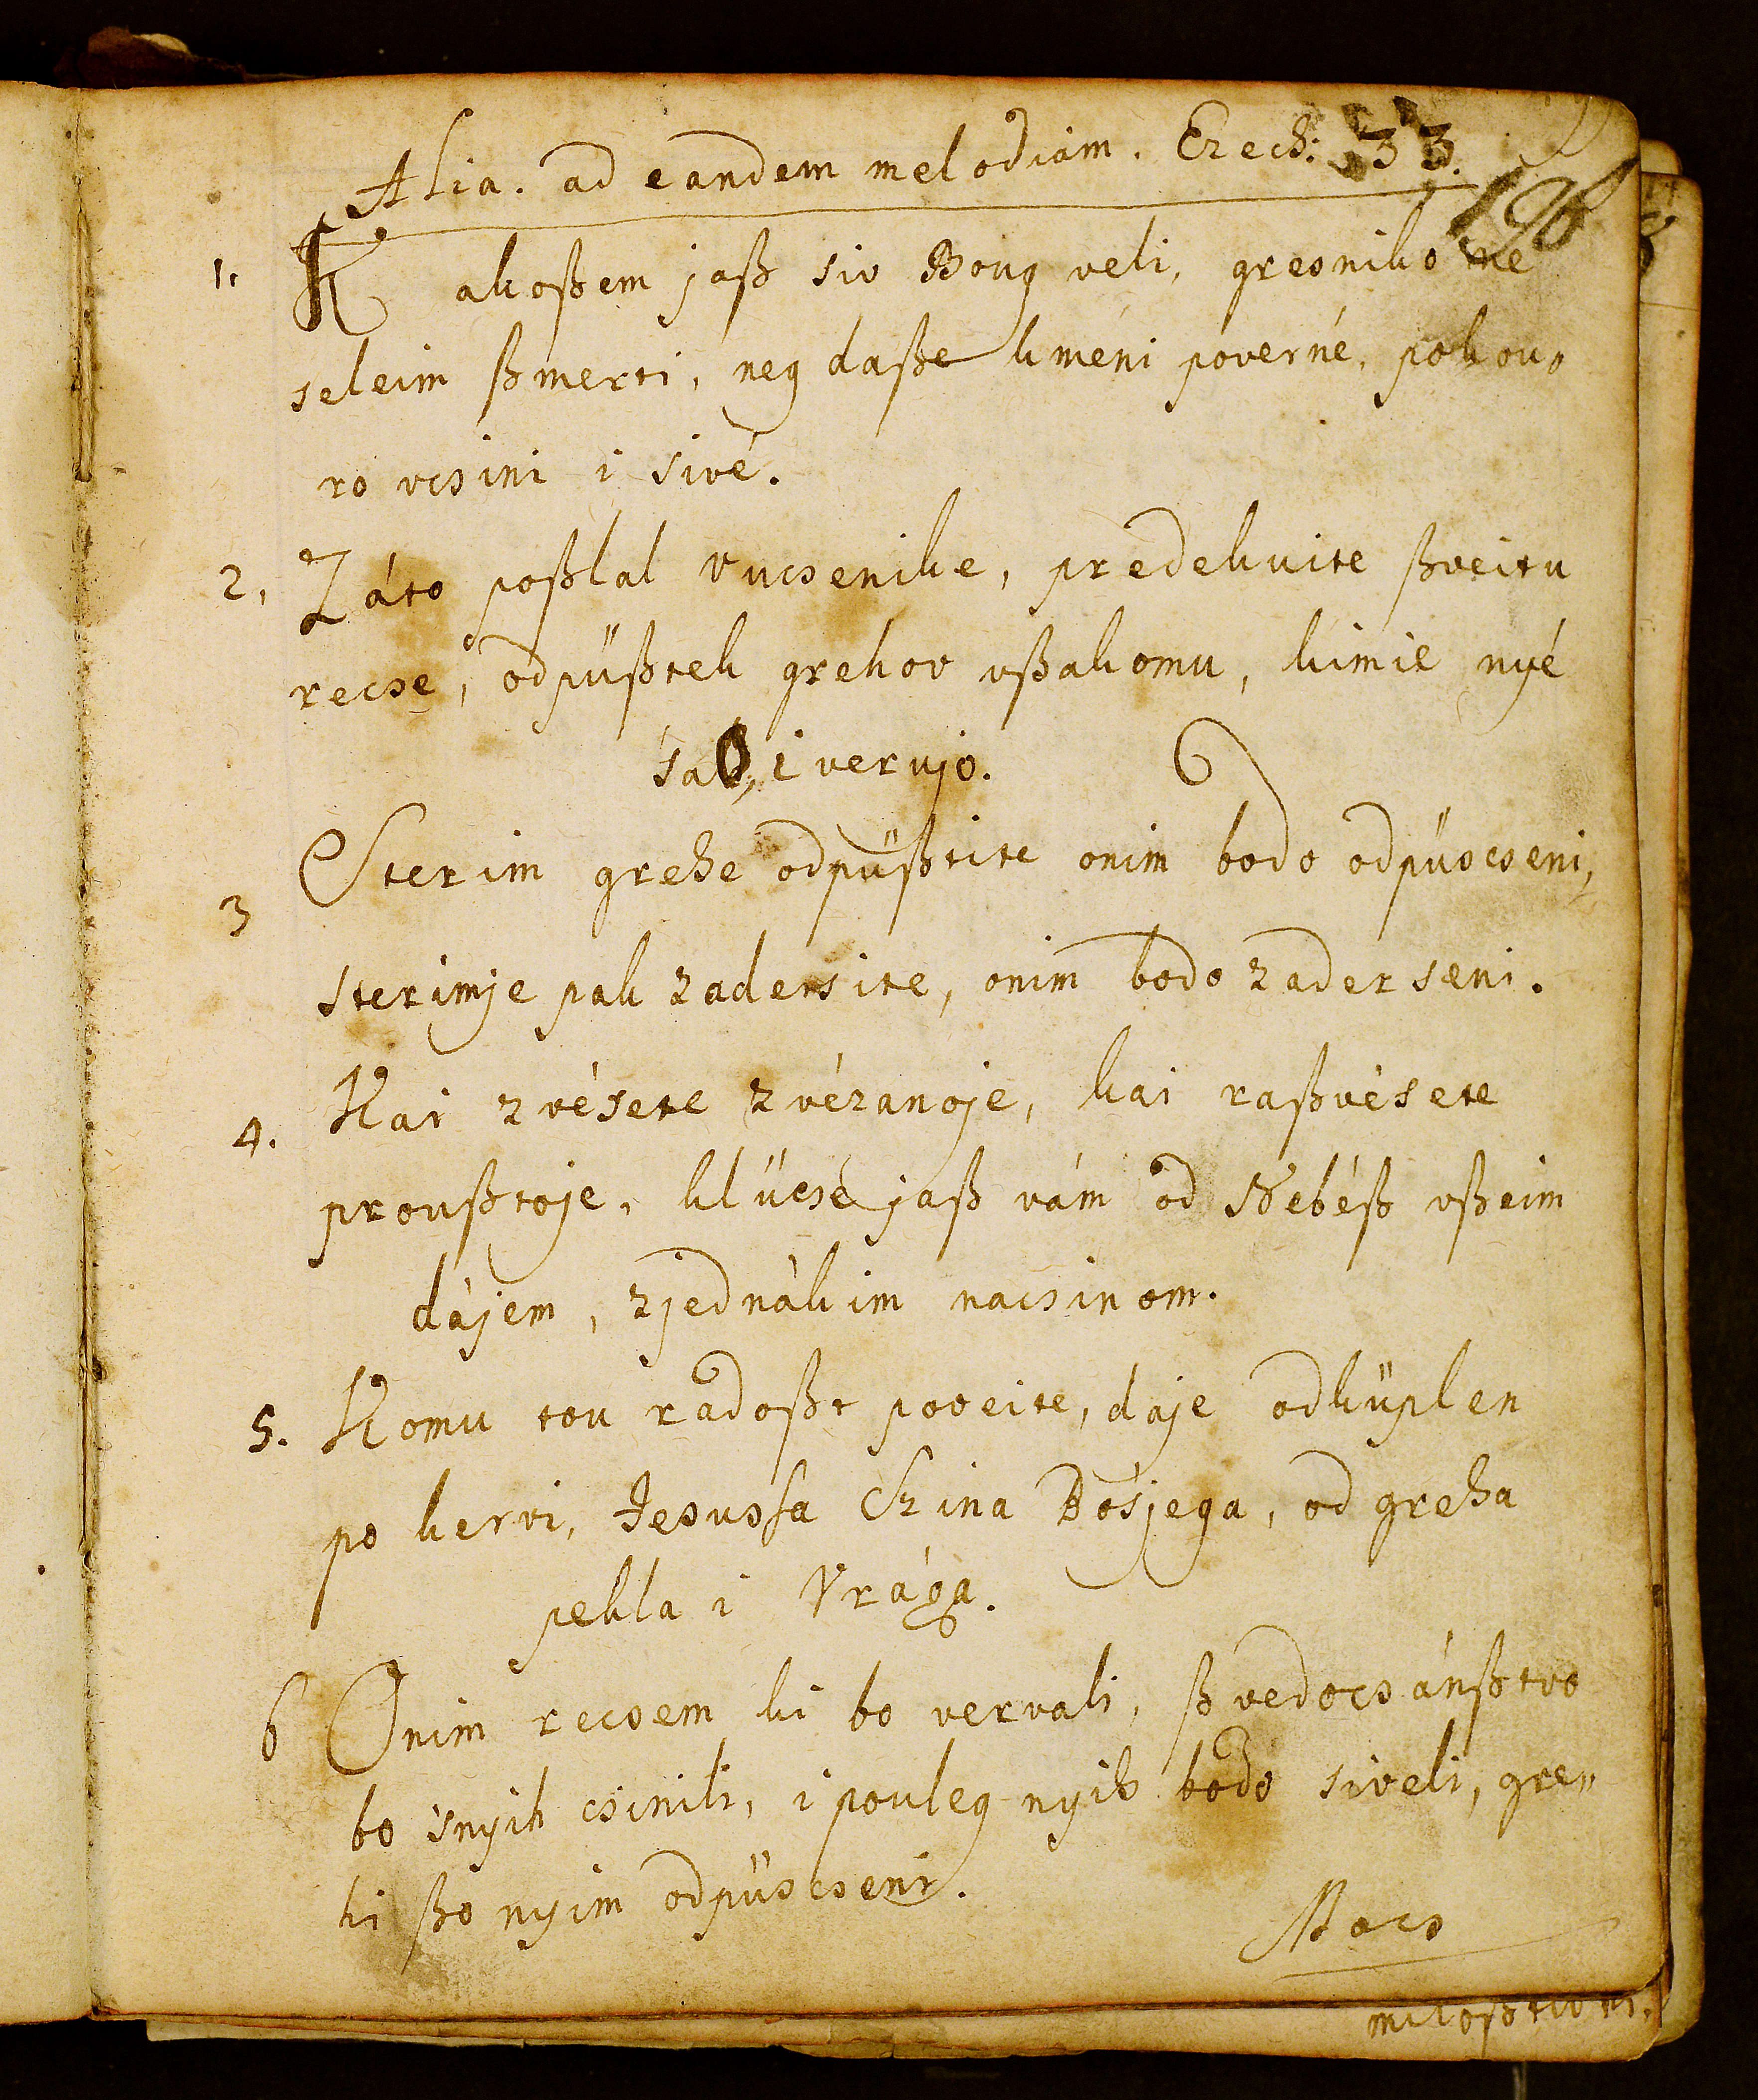 Alia. ad eandem melodiam. Ezech: 33.
196
1. Kakoßem jaß siv Boug veli, gresniko ne
seleim ßmerti, neg daße kméni poverné, pokou,
ro vcsini i sivé.
2, Záto poßlal vucsenike, predekuite ßveitu
recse, odpüßtek grehov vßakomu, kimie nyé
sao, i verujo.
3 Sterim grehe odpüßtite onim bodo odpüscseni,
sterimje pak zadersite, onim bodo zaderseni.
4. Kai zvésete zvézanoje, kai raßvésete
proußtoje, klücsé jaß vám od Nebéß vßeim
dájem, zjednákim nacsinom.
5. Komu tou radoßt poveite, daje odküplen
po kervi, Jesussa Szina Bósjega, od greha
pekla i Vrága.
6 Onim recsem ki bo vervali, ßvedocsánßtvo
bo snyih csinili, i pouleg nyih bodo siveli, gre„
hi ßo nyim odpüscseni.
Mocs
miloßtivni.